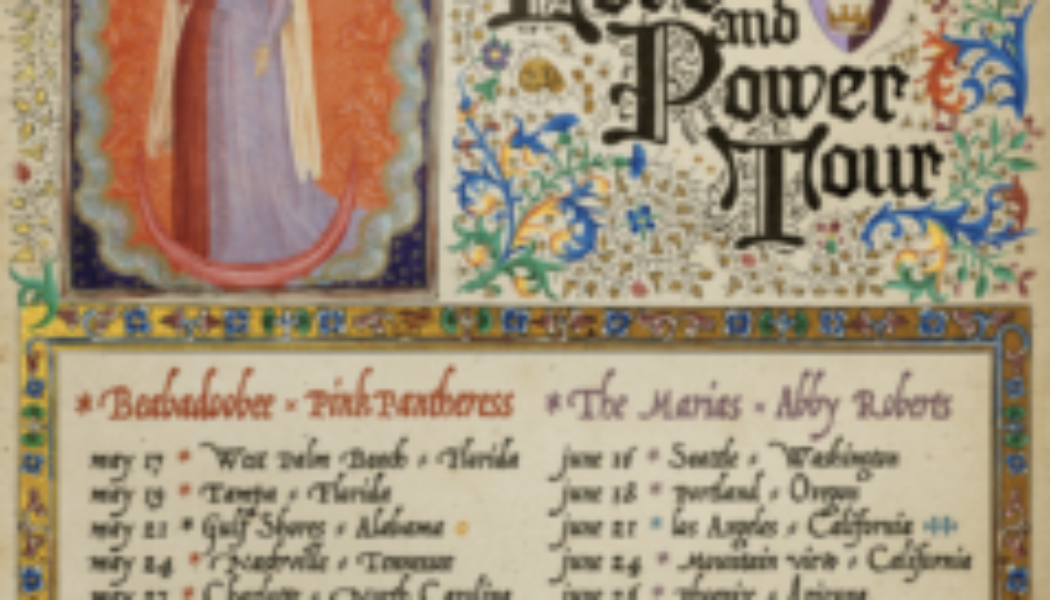 and
Power
Tour
* Beabadoobee - PinkPantheress
may 17 * West Palm Beach - Florida
may 19 * Tampa - Florida
may 21 * Gulf Shores - Alabama
may 24 * Nashville - Tennessee
may 27 * Charlotte - North Carolina
* The Marias - Abby Roberts
june 16 * Seattle - Washington
june 18 * portland - Oregon
june 21 * los Angeles - California
june 24 * Mountain view - California
phoenix - Arizona